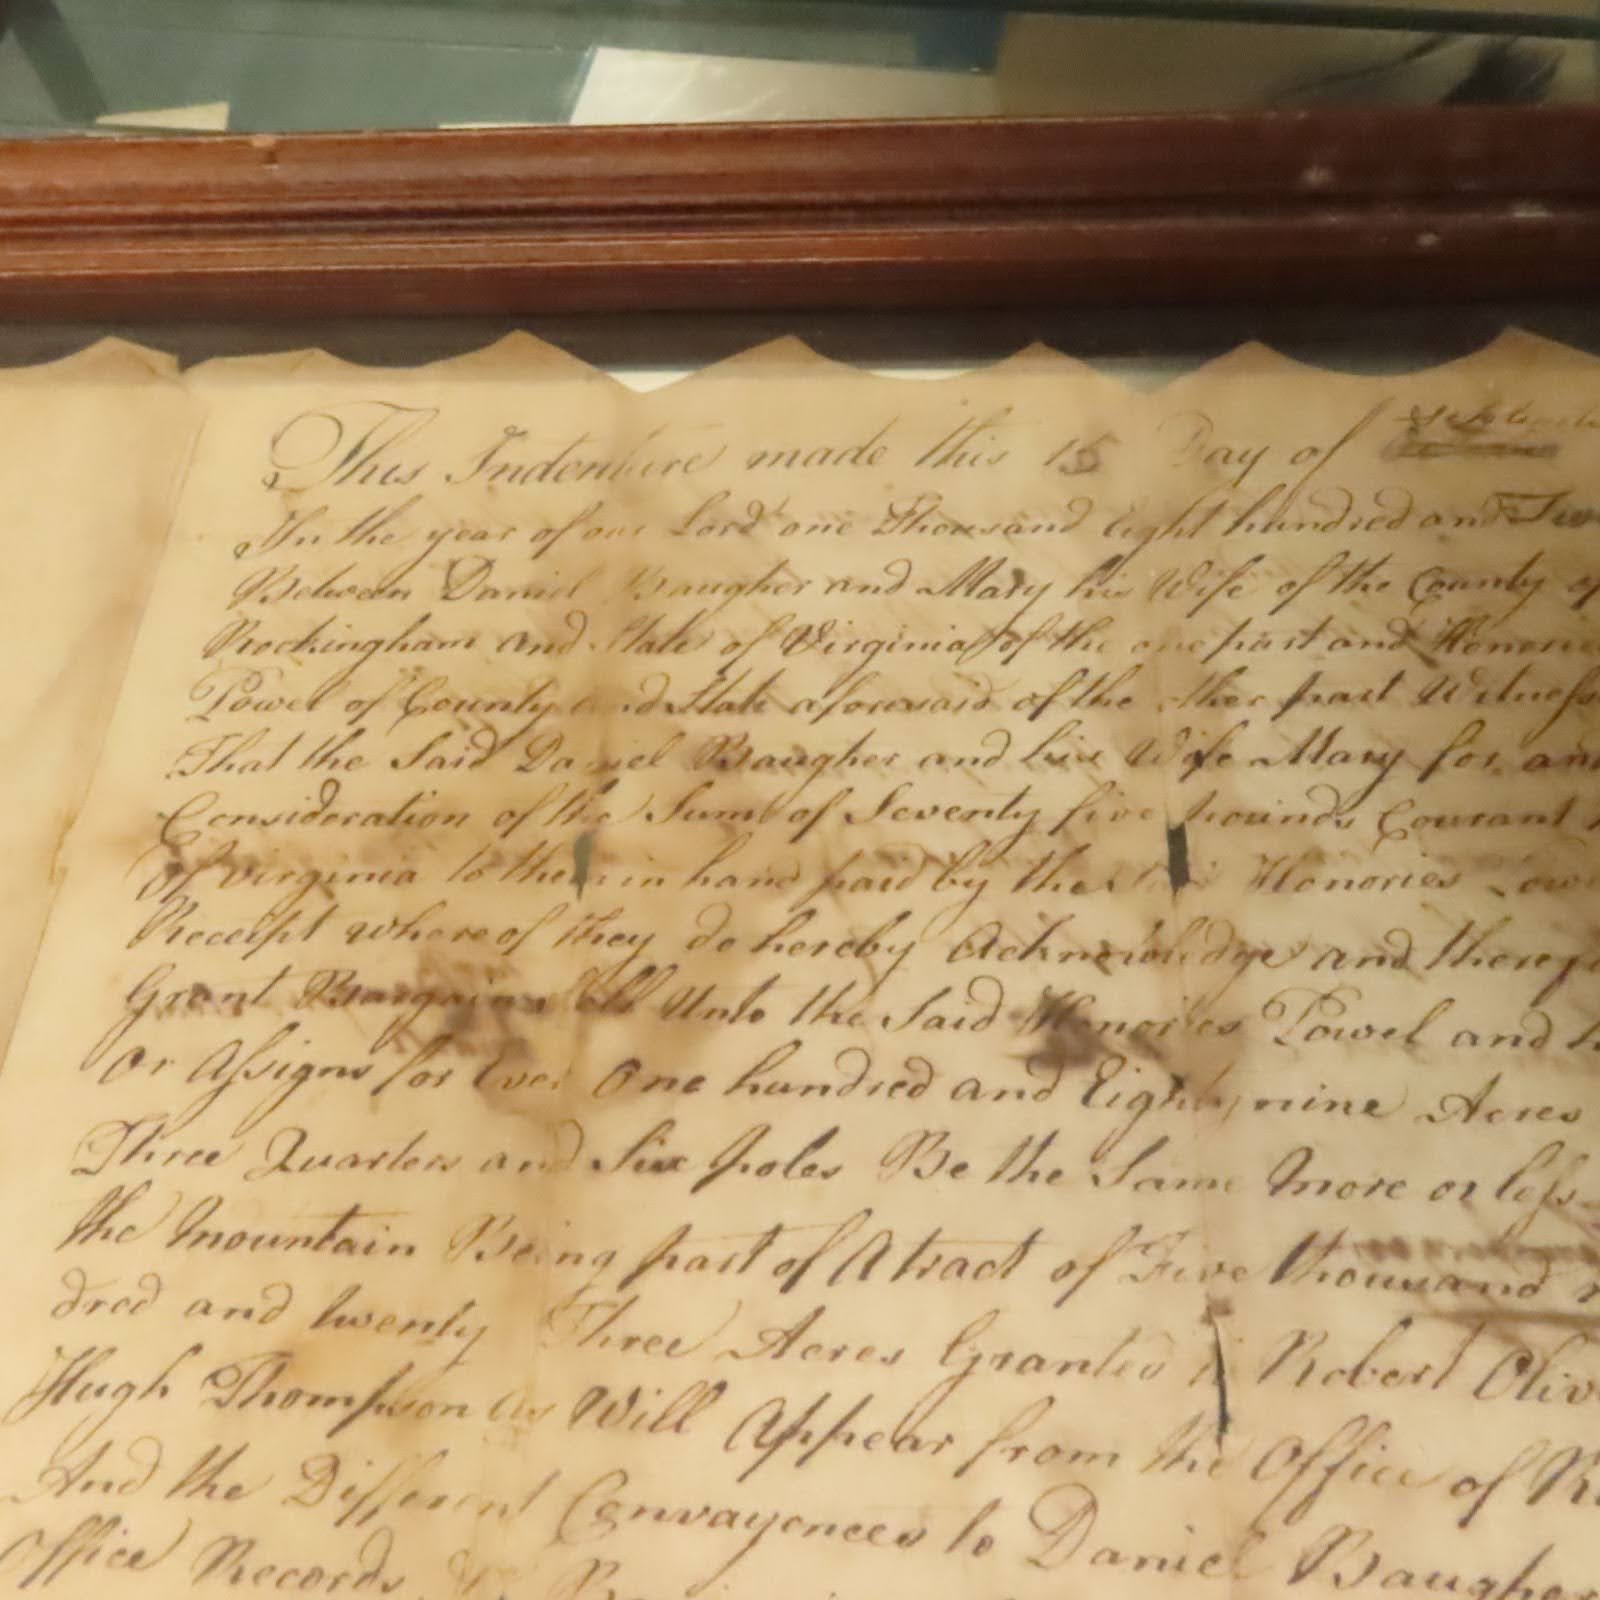 This Indenture made this 15 Day of September
In the year of our Lord one Thousand Eight hundred and
Between Daniel Baugher and Mary his Wife of the County of
Rockingham and State of Virginia of the one part and Honories
Powel of County and State aforesaid of the other part Witness
That the Said Daniel Baugher and his Wife Mary for and
Consideration of the Sum of Seventy five pounds Courant
Of virginia to them in hand paid by the Said Honories Powel
Receipt whereof they do hereby Acknowledge and
Grant Bargain Sell Unto the Said Honories Powel and
Or Assigns for Ever One hundred and Eighty nine Acres
Three Quarters and Six poles Be the Same More or less
the Mountain Being part of A tract of Five thousand
dred and twenty Three Acres Granted to Robert
Hugh Thompson as Will Appear from the Office of
And the Different Convayences to Daniel Baugher
Office Records